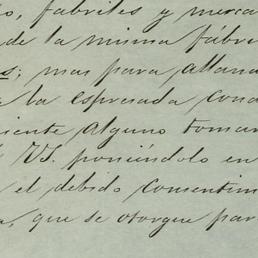 fabriles y merca
de la misma fábri
s; mas para allana
a la espresada cond
iente alguno toman
VV. poniéndolo en
el debido consentim
que se otorgue par